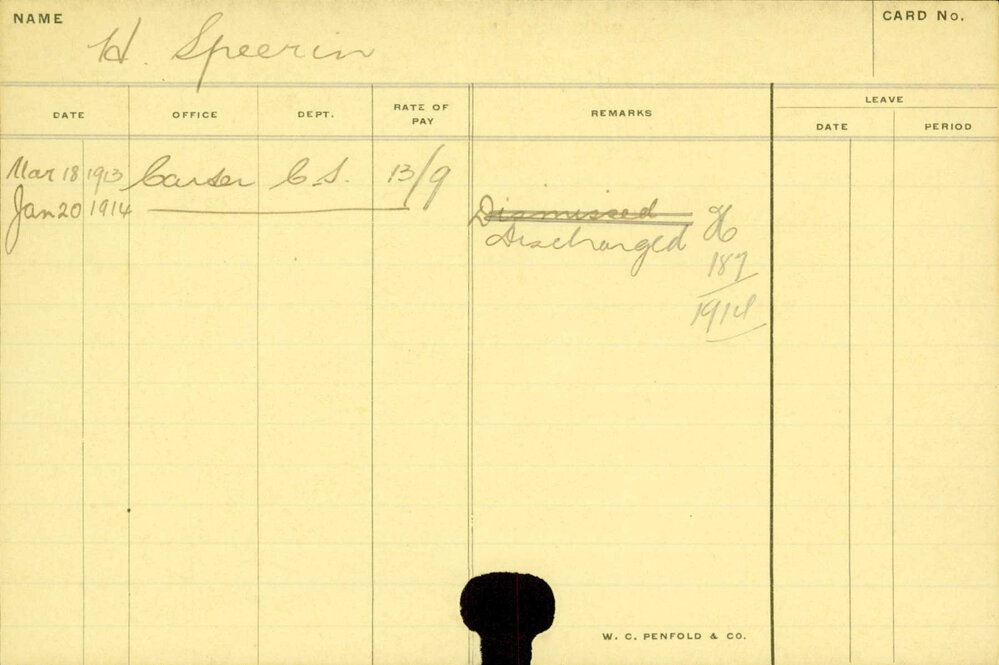 NAME
CARD No.
H. Speerin
DATE OFFICE DEPT. RATE OF PAY REMARKS LEAVE
DATE PERIOD
Mar 18 1913 Carter C.S. 13/9
Jan 20 1914 Dismissed
Discharged
187
1914
W. C. PENFOLD & CO.